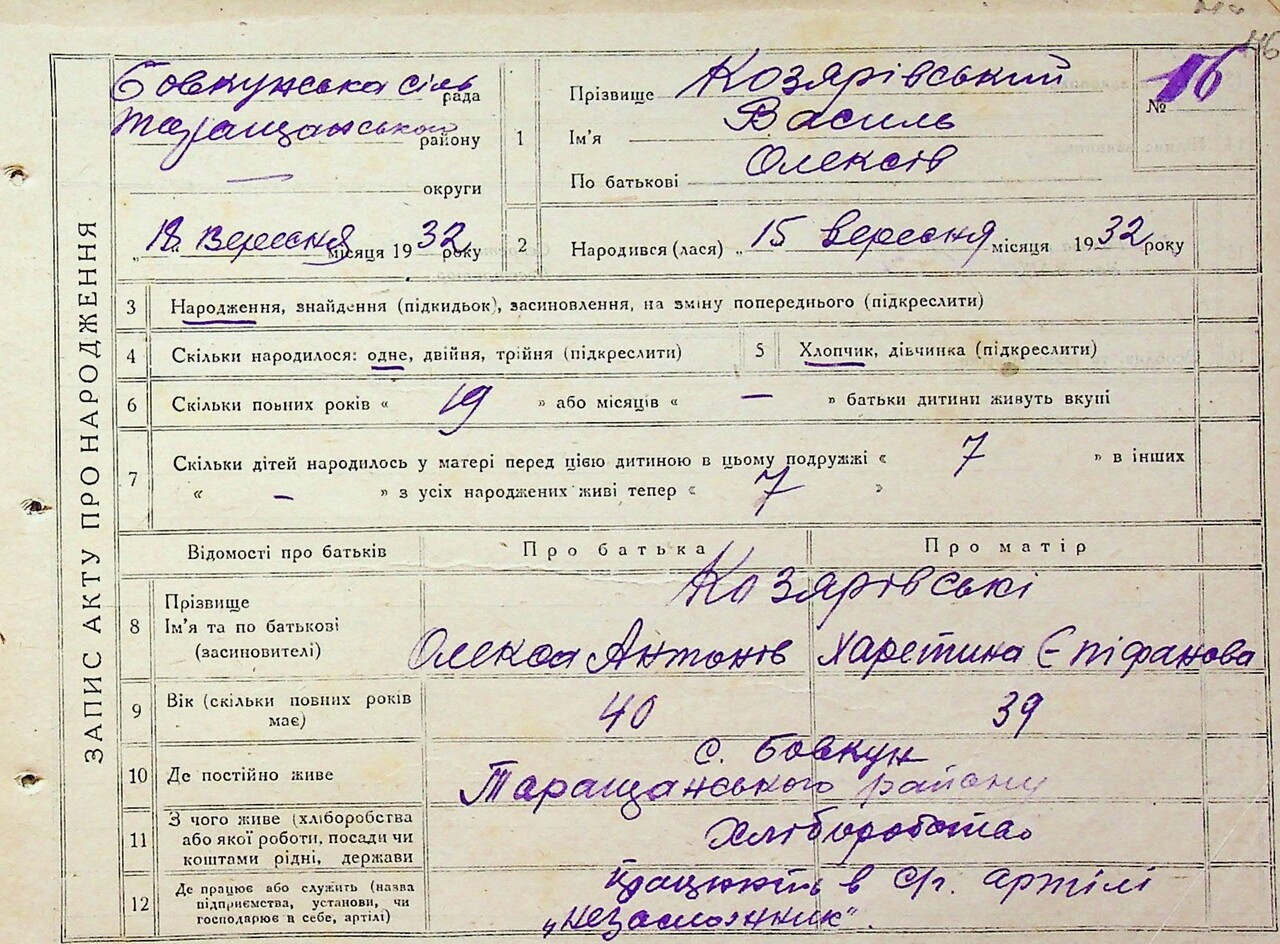 116
ЗАПИС АКТУ ПРО НАРОДЖЕННЯ
Бовкунська сіль рада
Таращанської району
— округи
„18„ вересня місяця 1932 року
1 Прізвище Козярівський
Ім'я Василь
По батькові Олексів
№ 16
2 Народився (лася) „15 вересня місяця 1932 року
3 Народження, знайдення (підкидьок), засиновлення, на зміну попереднього (підкреслити)
4 Скільки народилося: одне, двійня, трійня (підкреслити) 5 Хлопчик, дівчинка (підкреслити)
6 Скільки повних років « 19 » або місяців « — » батьки дитини живуть вкупі
7 Скільки дітей народилось у матері перед цією дитиною в цьому подружжі « 7 » в інших
« – » з усіх народжених живі тепер « 7 »
Відомості про батьків Про батька Про матір
8 Прізвище Козярівські
Ім'я та по батькові (засиновителі) Олекса Антонів Харетина Єпіфанова
9 Вік (скільки повних років має) 40 39
10 Де постійно живе с. Бовкун
Таращанського району
11 З чого живе (хліборобства або якої роботи, посади чи коштами рідні, держави Хліборобства
12 Де працює або служить (назва підприємства, установи, чи господарює в себе, артілі) працюють в с/г. артілі
„Незаможник".